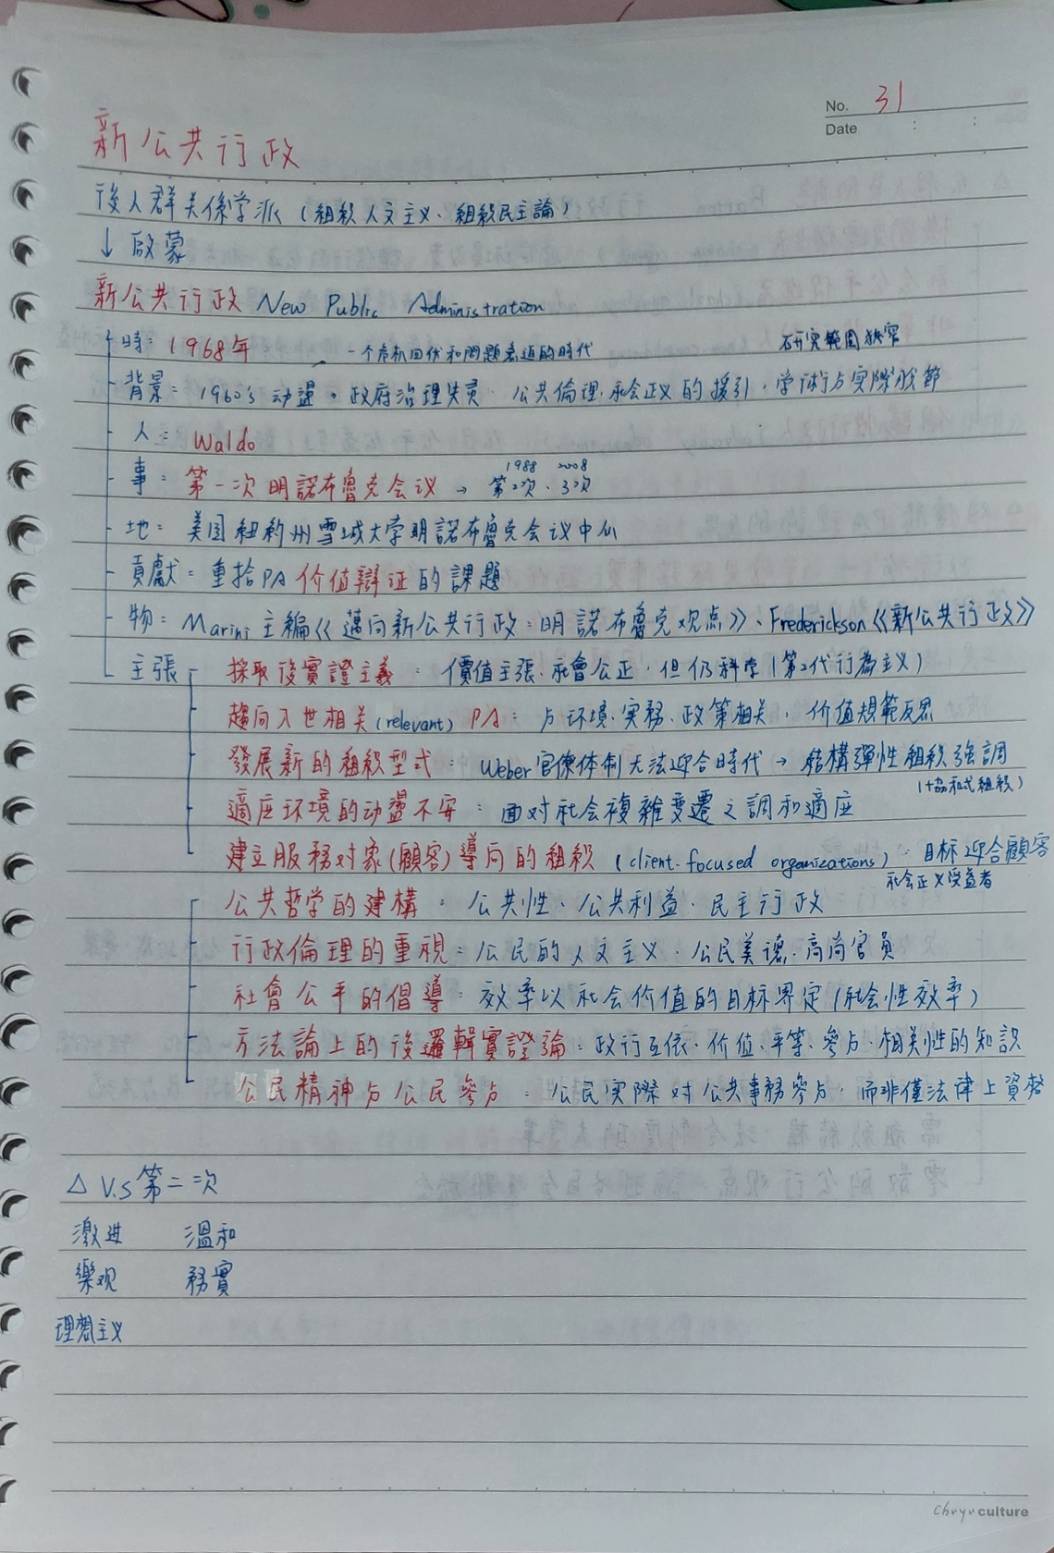 No. 31
Date : :
新公共行政
後人群关係学派(組織人文主义、組織民主論)
↓ 啟蒙
新公共行政 New Public Administration
時：1968年 一个危机四伏和問題急迫的時代 研究範围狹窄
背景：1960's 动盪。政府治理失灵 公共倫理、社会正义的援引、学術与实際脫節
人：Waldo
事：第一次明諾布魯克会议 → 第2次、3次
1988 2008
地：美国紐約州雪城大学明諾布魯克会议中心
貢獻：重拾PA价值辯证的課題
物：Marini主編《邁向新公共行政：明諾布魯克观点》、Frederickson《新公共行政》
主張 採取後實證主義：價值主張、社會公正，但仍科学(第2代行為主义)
趨向入世相关(relevant) PA：与环境、实務、政策相关，价值規範反思
發展新的組織型式：Weber官僚体制无法迎合時代 → 結構彈性組織強調
(協和式組織)
適应环境的动盪不安：面对社会複雜变遷之調和適应
建立服務对象(顧客)導向的組織 (client-focused organizations)：目标迎合顧客
社会正义受益者
公共哲学的建構：公共性、公共利益、民主行政
行政倫理的重視：公民的人文主义、公民美德、高尚官員
社會公平的倡導：效率以社会价值的目标界定(社会性效率)
方法論上的後邏輯實證論：政行互依、价值、平等、參与、相关性的知識
公民精神与公民參与：公民实際对公共事務參与，而非僅法律上資格
△ V.S 第二次
激进 溫和
樂观 務實
理想主义
Chuyu culture